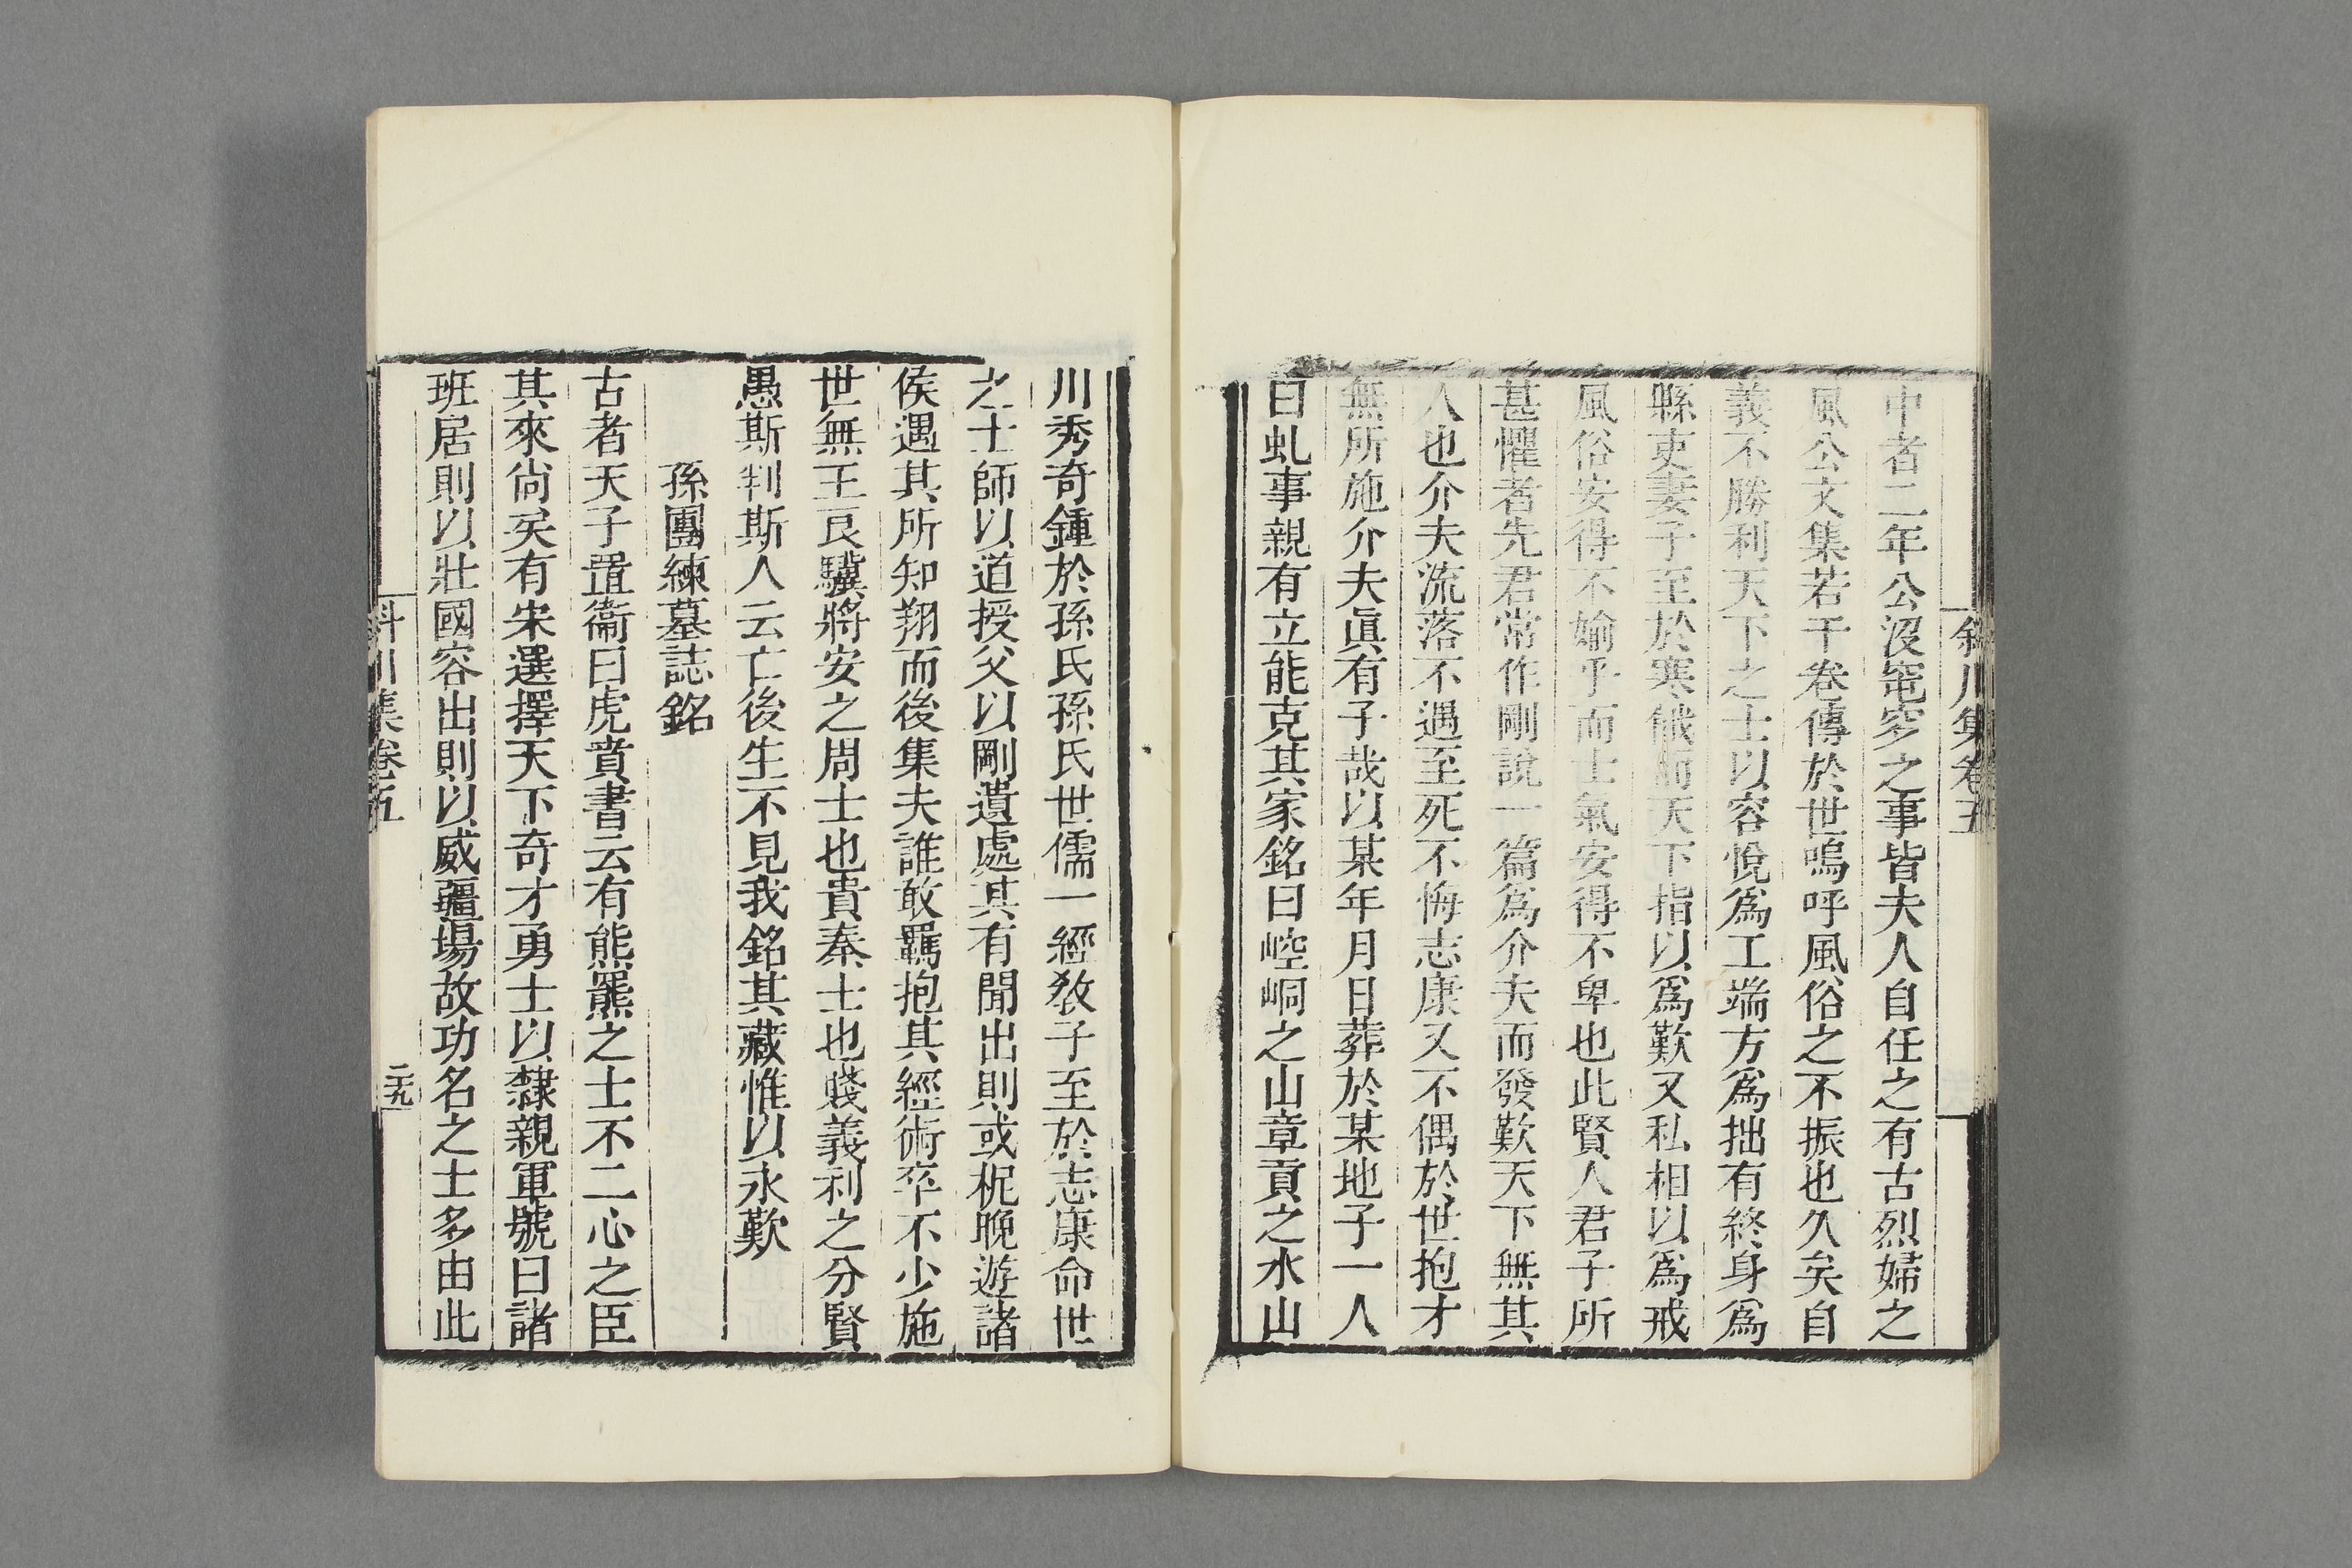 斜川集卷五
中者二年公沒窀穸之事皆夫人自任之有古烈婦之
風公文集若干卷傳於世嗚呼風俗之不振也久矣自
義不勝利天下之士以容悅爲工端方爲拙有終身爲
縣吏妻子至於寒餓而天下指以爲歎又私相以爲戒
風俗安得不媮乎而士氣安得不卑也此賢人君子所
甚懼者先君常作剛說一篇爲介夫而發歎天下無其
人也介夫流落不遇至死不悔志康又不偶於世抱才
無所施介夫眞有子哉以某年月日葬於某地子一人
曰虬事親有立能克其家銘曰崆峒之山章貢之水山
川秀奇鍾於孫氏孫氏世儒一經敎子至於志康命世
之士師以道授父以剛遺處其有聞出則或柅晚遊諸
侯遇其所知翔而後集夫誰敢羈抱其經術卒不少施
世無王良驥將安之周士也貴秦士也賤義利之分賢
愚斯判斯人云亡後生不見我銘其藏惟以永歎
孫團練墓誌銘
古者天子置衞曰虎賁書云有熊羆之士不二心之臣
其來尙矣有宋選擇天下奇才勇士以隸親軍號曰諸
班居則以壯國容出則以威疆場故功名之士多由此
斜川集卷五
二九